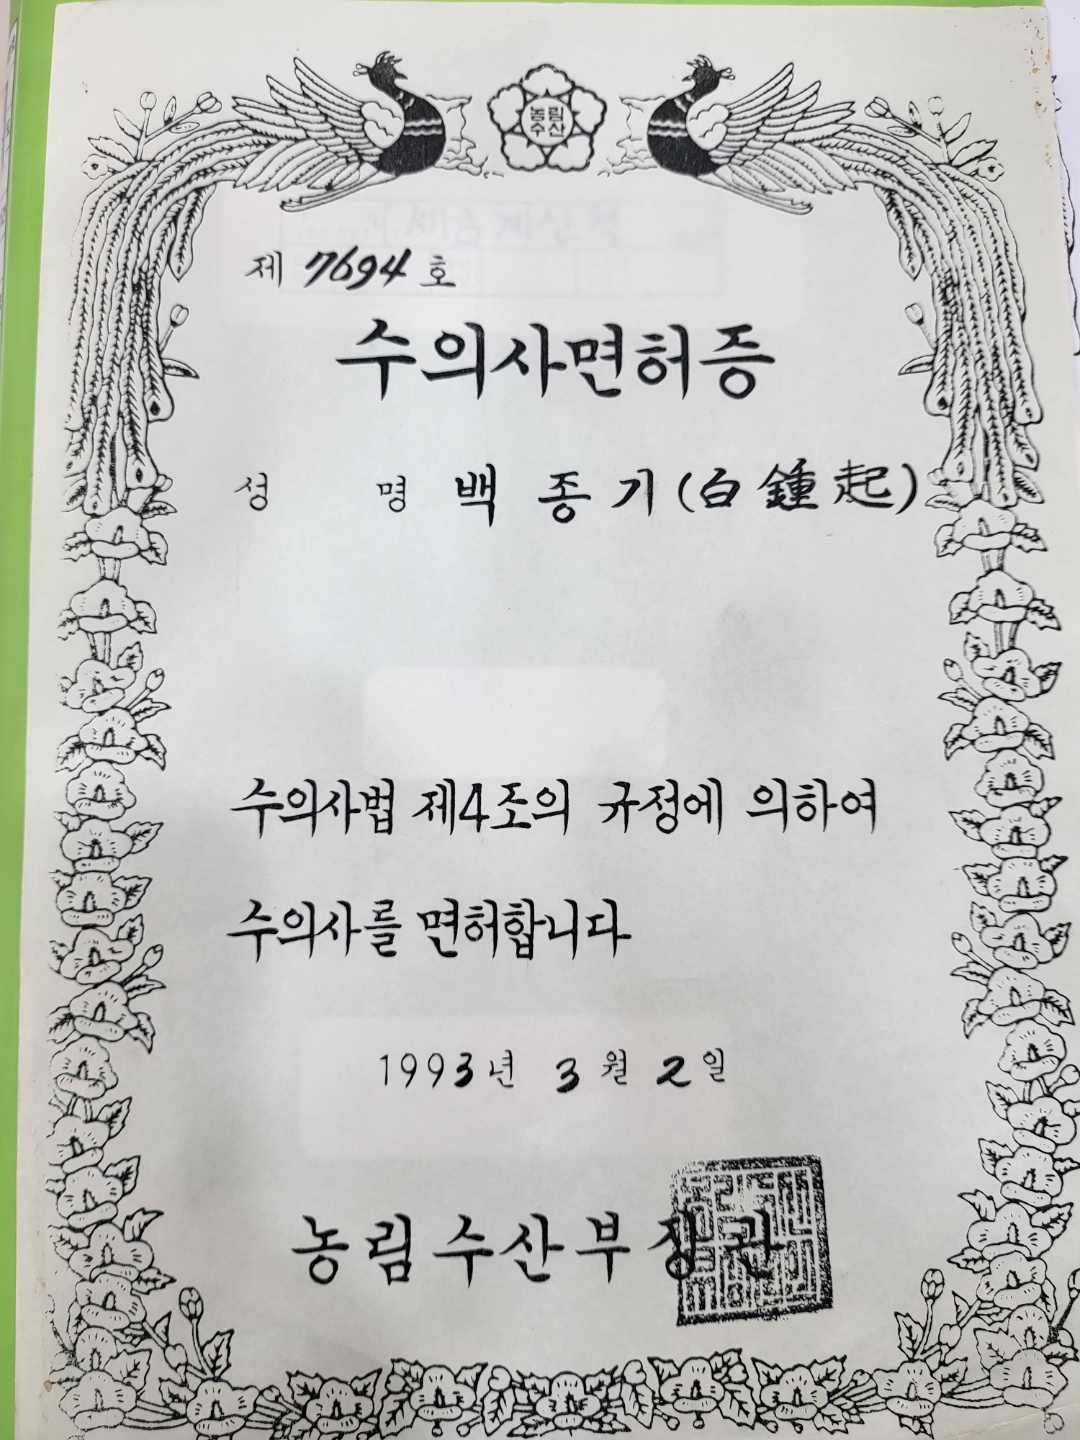 농림
수산
제 7694 호
수의사면허증
성 명 백 종 기 (白 鍾 起)
수의사법 제4조의 규정에 의하여
수의사를 면허합니다
1993년 3월 2일
농림수산부장관